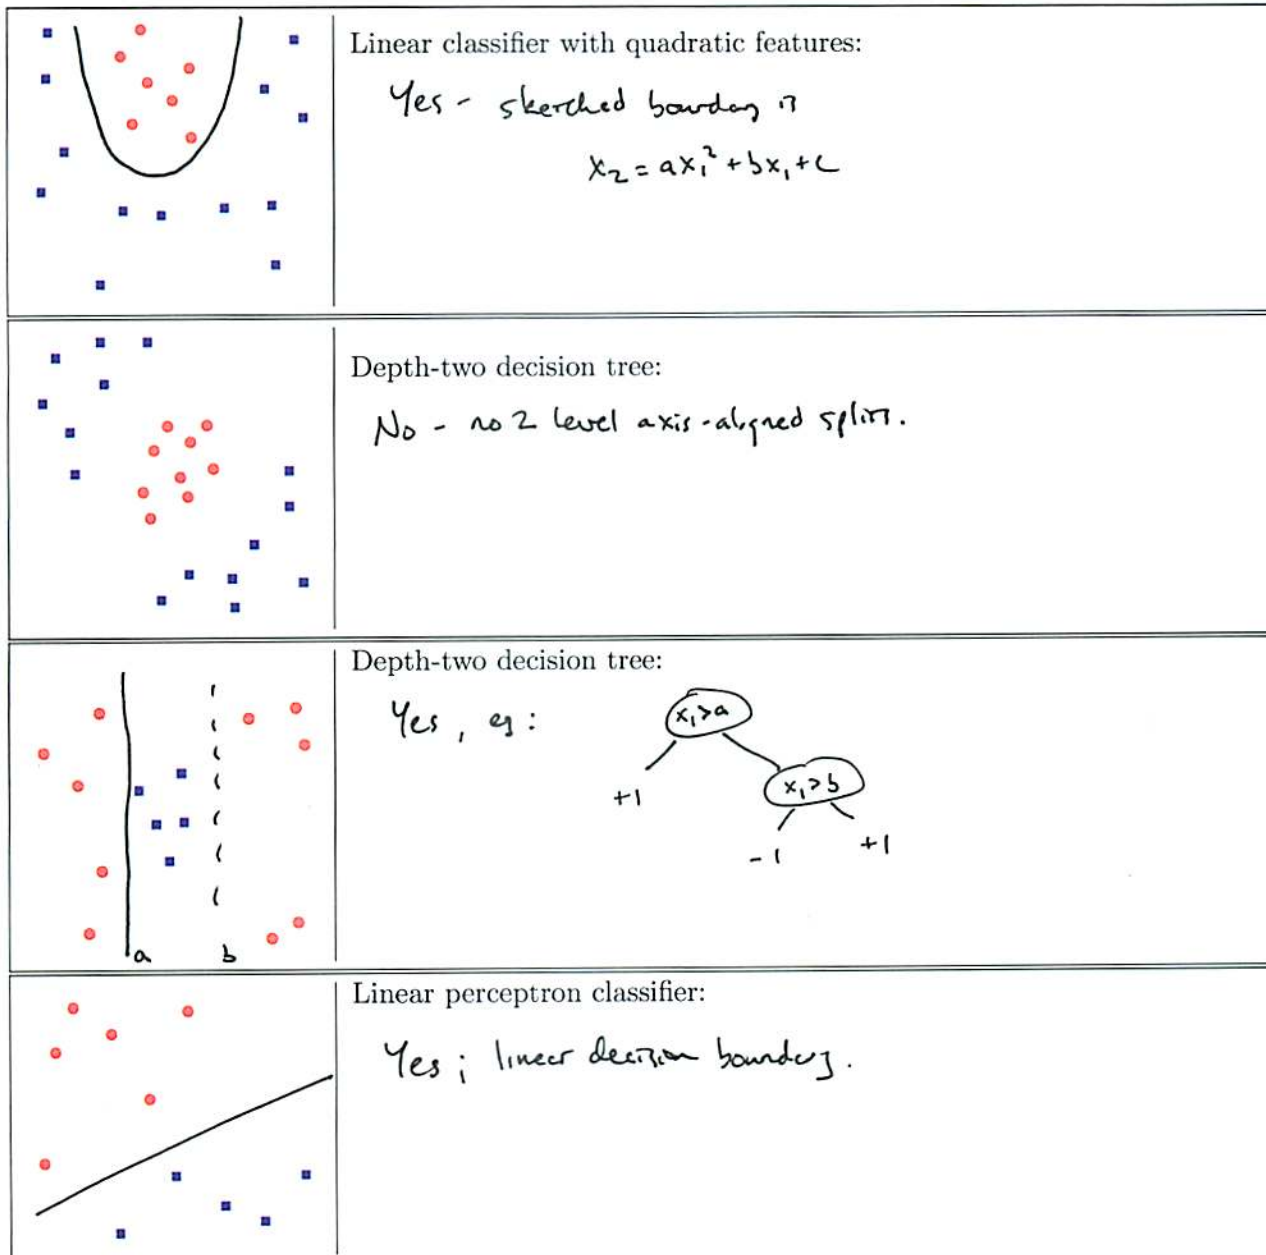 Linear classifier with quadratic features:
Yes - sketched boundary is
x₂ = ax₁² + bx₁ + c
Depth-two decision tree:
No - no 2 level axis-aligned splits.
Depth-two decision tree:
Yes, eg:
x₁>a
+1
x₁>b
-1
+1
a
b
Linear perceptron classifier:
Yes; linear decision boundary.